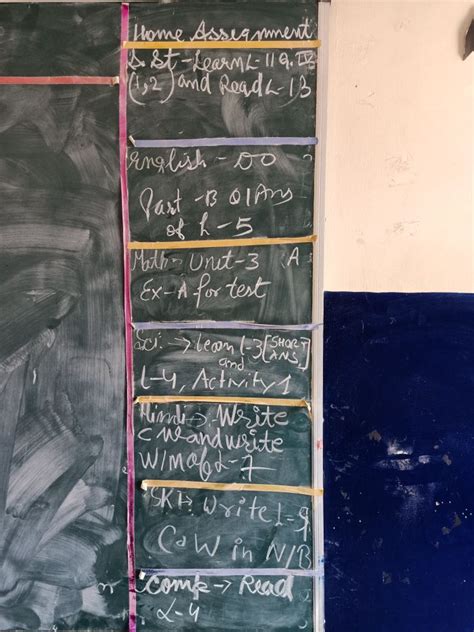 Home Assegnment
S. St - Learn L-11 Q. IV
(1,2) and Read L-13
English - DO
Part -B Q/Ans
of L-5
Math - Unit-3 (A
Ex-A for test
Sci. → learn L-3 [SHORT ANS]
and
L-4, Activity 1
Hindi → Write
C W and write
W/M of L-7
SKT → Write L-9
C W in N/B
Comp → Read
L-4